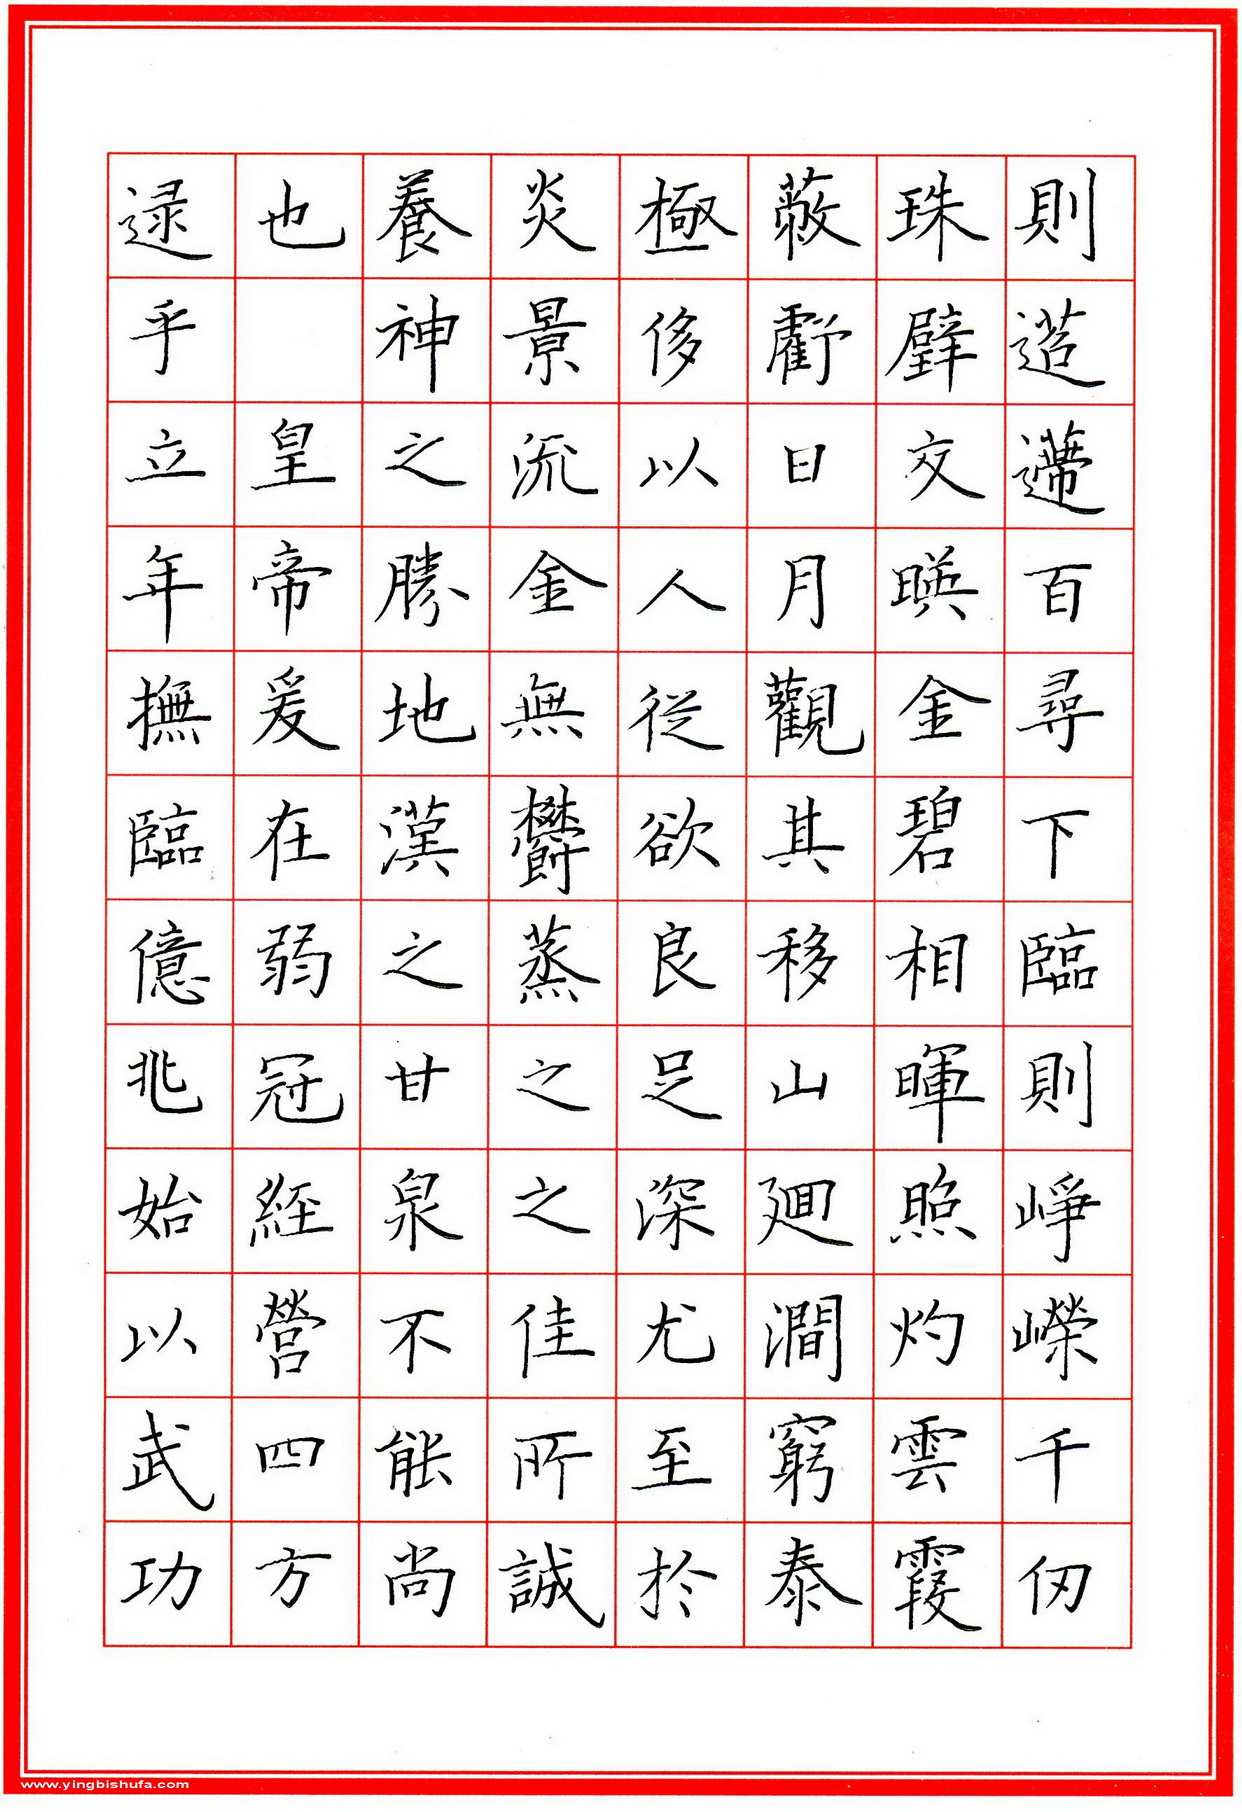 則迢遰百尋下臨則崢嶸千仞
珠璧交暎金碧相暉照灼雲霞
蔽虧日月觀其移山廻澗窮泰
極侈以人從欲良足深尤至於
炎景流金無鬱蒸之之佳所誠
養神之勝地漢之甘泉不能尚
也 皇帝爰在弱冠經營四方
逯乎立年撫臨億兆始以武功
www.yingbishufa.com